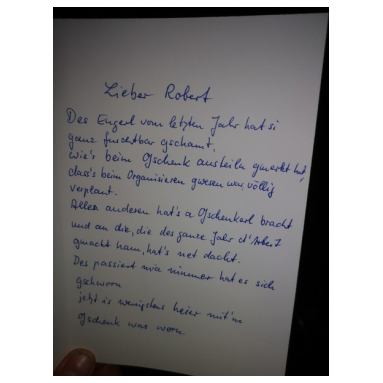 Lieber Robert
Des Engerl vom letzten Jahr hat si
ganz furchtbar gschamt.
Wie's beim Gschenk austeiln gmerkt hat,
dass's beim Organisieren gwesen war, völlig
verplant.
Allen anderen hat's a Gschenkerl bracht
und an die, die des ganze Jahr d'Arbeit
gmacht ham, hat's net dacht.
Des passiert mir nimmer hat es sich
gschworn
jetzt is wenigstens heier mit'm
Gschenk was worn.